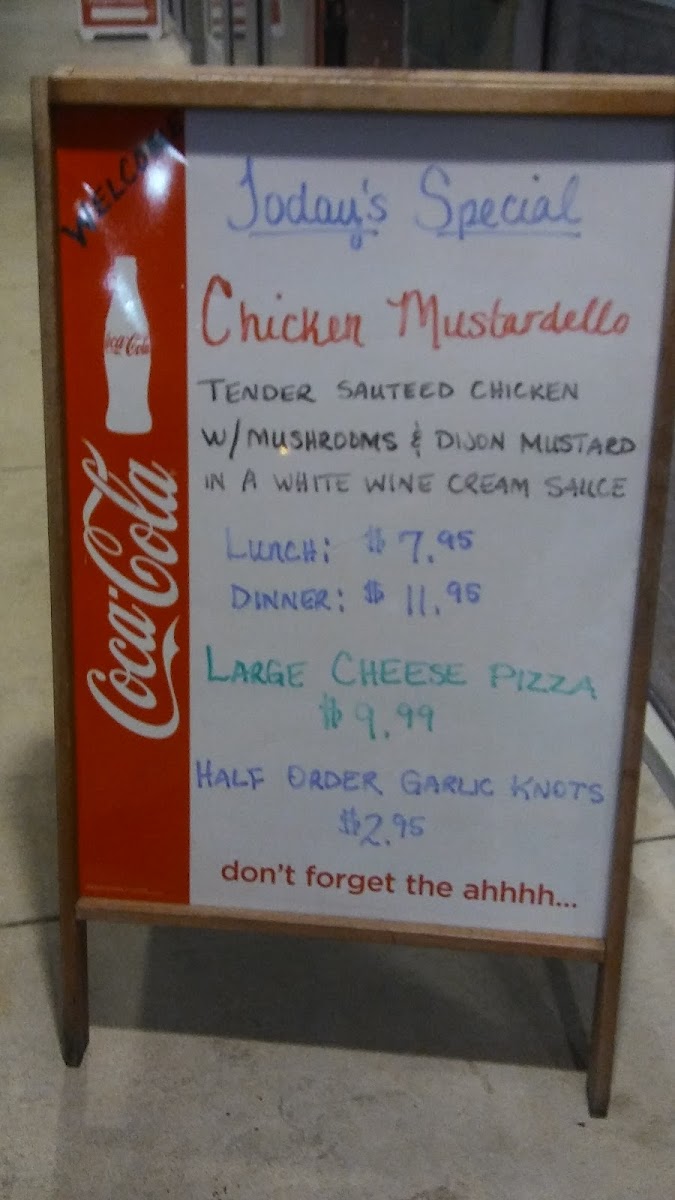 WELCOME
Coca-Cola
Coca-Cola
Today's Special
Chicken Mustardello
TENDER SAUTEED CHICKEN
W/MUSHROOMS & DIJON MUSTARD
IN A WHITE WINE CREAM SAUCE
LUNCH: $7.95
DINNER: $11.95
LARGE CHEESE PIZZA
$9.99
HALF ORDER GARLIC KNOTS
$2.95
don't forget the ahhhh...